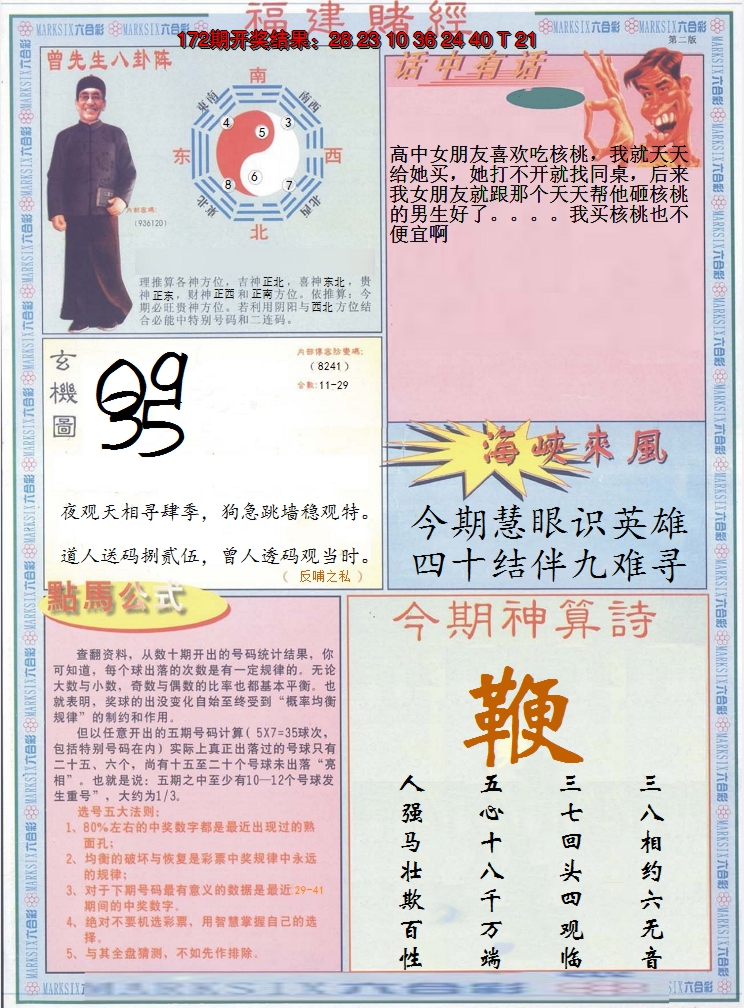 福建賭經
172期开奖结果：28 23 10 36 24 40 T 21
MARKSIX六合彩
第二版
曾先生八卦阵
南
东南
南西
4
5
3
东
西
8
6
7
東北
北西
北
(936120)
理推算各神方位，吉神正北，喜神东北，贵
神正东，财神正西和正南方位。依推算：今
期必旺贵神方位。若利用阴阳与西北方位结
合必能中特别号码和二连码。
话中有话
高中女朋友喜欢吃核桃，我就天天
给她买，她打不开就找同桌，后来
我女朋友就跟那个天天帮他砸核桃
的男生好了。。。。我买核桃也不
便宜啊
玄機圖
09
35
（8241）
合数:11-29
夜观天相寻肆季，狗急跳墙稳观特。
道人送码捌贰伍，曾人透码观当时。
（ 反哺之私 ）
海峽來風
今期慧眼识英雄
四十结伴九难寻
點馬公式
查翻资料，从数十期开出的号码统计结果，你
可知道，每个球出落的次数是有一定规律的。无论
大数与小数，奇数与偶数的比率也都基本平衡。也
就表明，奖球的出没变化自始至终受到“概率均衡
规律”的制约和作用。
但以任意开出的五期号码计算( 5X7=35球次，
包括特别号码在内）实际上真正出落过的号球只有
二十五、六个，尚有十五至二十个号球未出落“亮
相”。也就是说：五期之中至少有10—12个号球发
生重号”，大约为1/3。
选号五大法则：
1、80%左右的中奖数字都是最近出现过的熟
面孔；
2、均衡的破坏与恢复是彩票中奖规律中永远
的规律；
3、对于下期号码最有意义的数据是最近29-41
期间的中奖数字。
4、绝对不要机选彩票，用智慧掌握自己的选
择。
5、与其全盘猜测，不如先作排除。
今期神算詩
鞭
三八相约六无音
三七回头四观临
五心十八千万端
人强马壮欺百性